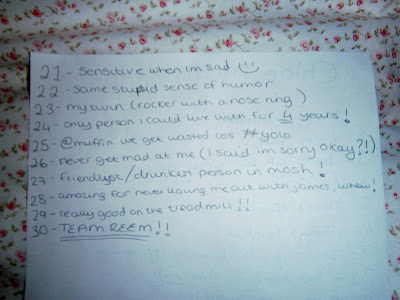 21 - sensitive when im sad
22 - same stupid sense of humor
23 - my twin (rocker with a nose ring)
24 - only person i could live with for 4 years!
25 - @muffin we get wasted cos #yolo
26 - never get mad at me (I said im sorry okay?!)
27 - friendlyst/drunkest person in mosh!
28 - amazing for never leaving me out with james, whew!
29 - really good on the treadmill!!
30 - TEAM REEM!!